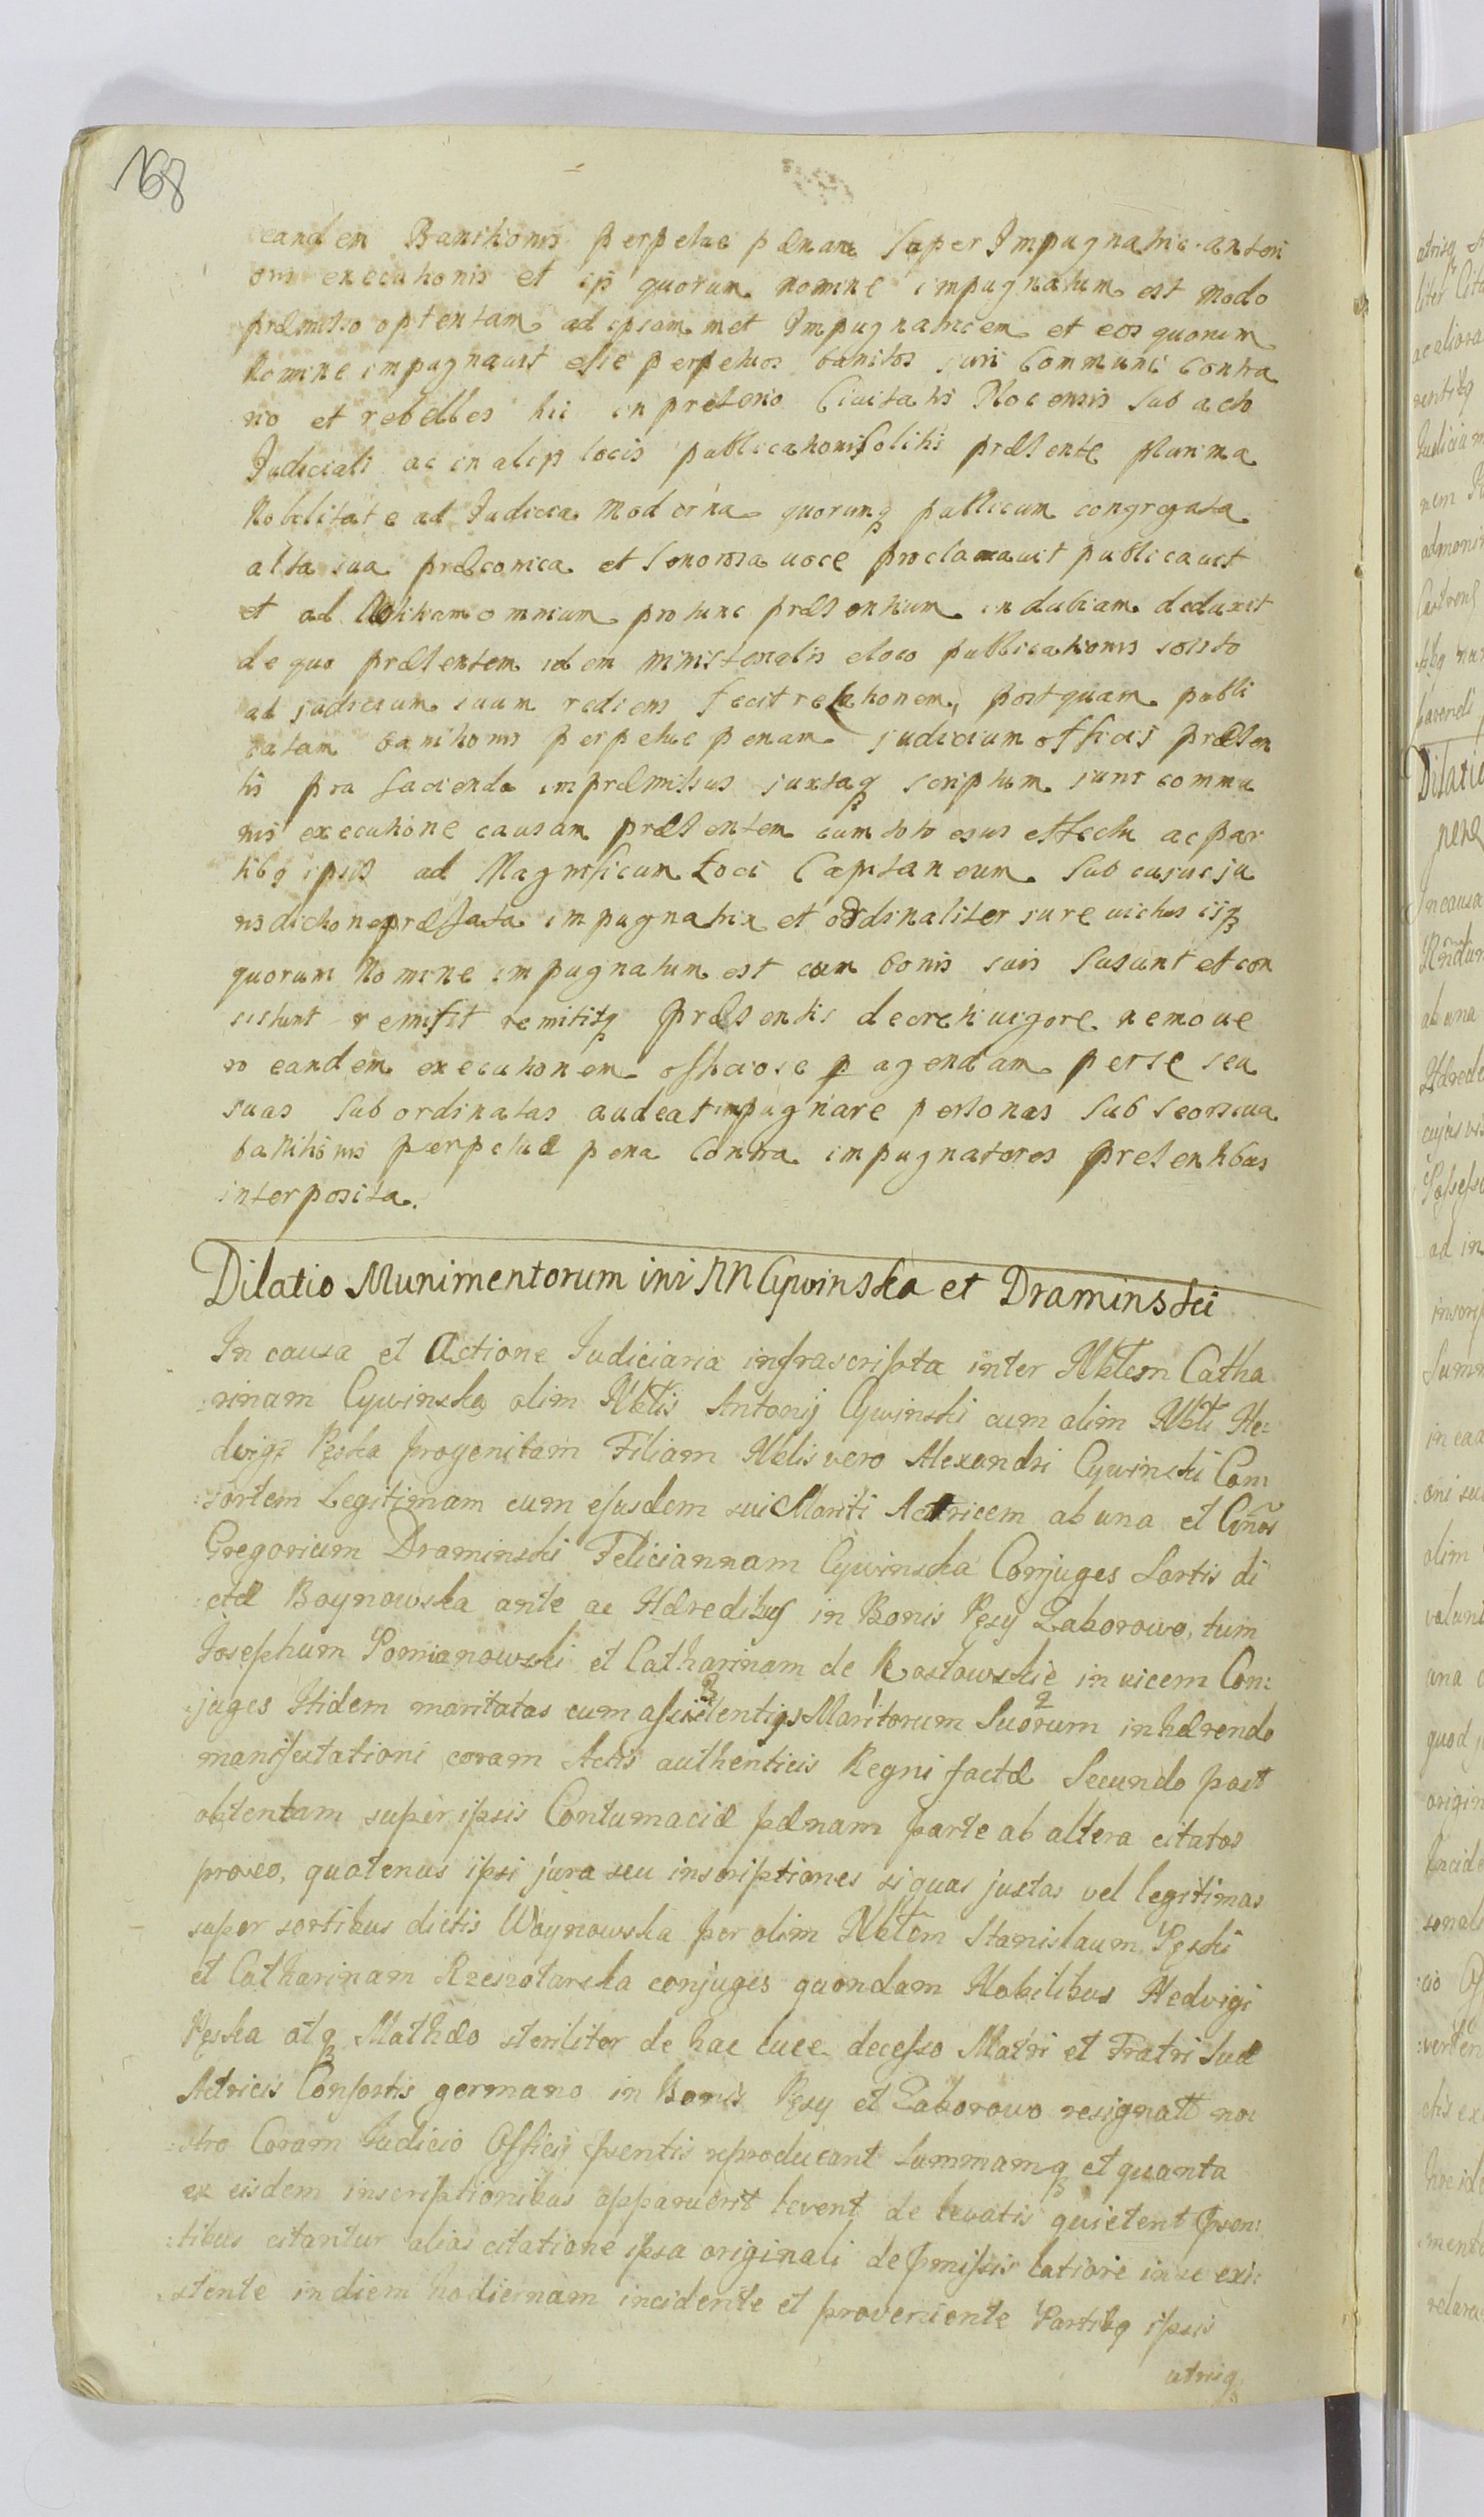 168
eandem Banitionis perpetuæ pænam super Impugnatrice anteri
oris executionis et iis quorum nomine impugnatum est modo
præmisso optentam ad ipsam met Impugnatricem et eos quorum
Nomine impugnavit esse perpetuos banitos juri Communi Contra
rio et rebelles hic in pretorio Civitatis Plocensis sub acto
Judiciali ac in aliis locis publicationis solitis præsente plurima
Nobilitate ad Judicia moderna quorumq publicum congregata
alta sua præconica et sonorosa voce proclamavit publicavit
et ad Notitiam omnium pro tunc præsentium indubiam deduxit
de quo præsentem idem ministerialis e loco publicationis solito
ad judicium suum rediens fecit relationem, postquam publi
catam banitionis perpetuæ penam judicium officii præsen
tis pro facienda in præmissis juxtaq scriptum juris commu
nis executione causam præsentem cum toto ejus effectu ac par
tibq ipsis ad Magnificum Loci Capitaneum sub cujus ju
risdictione præfata impugnatrix et ordinaliter jure victus iisq
quorum Nomine impugnatum est cum bonis suis subsunt et con
sistunt remisit remititq præsentis decreti vigore nemo ve
ro eandem executionem officiose p agendam per se seu
suas subordinatas audeat impugnare personas sub seorsiva
banitionis perpetuæ pena Contra impugnatores presentibus
interposita.
Dilatio Munimentorum inr NN Cywinska et Draminski
In causa et Actione Judiciaria infrascripta inter Nbtem Catha
:rinam Cywinska olim Nbtis Antonij Cywinski cum olim Nbti He:
dvigi Pęska progenitam Filiam Nbtis vero Alexandri Cywinski Con
:sortem Legitimam cum ejusdem sui Mariti Actricem ab una et Gñõs
Gregorium Draminski Feliciannam Cywinska Conjuges Sortis di
:ctæ Boynowska ante ac Hæredibus in Bonis Pęsy Zaborowo, tum
Josephum Pomianowski et Catharinam de Rostowskie in vicem Con:
:juges Itidem maritatas cum assistentijs Maritorum Suorum inhærendo
manifestationi coram Actis authenticis Regni factæ Secundo post
obtentam super ipsis Contumaciæ pænam parte ab altera citatos
pro eo, quatenus ipsi jura seu inscriptiones si quas justas vel legitimas
super sortibus dictis Woynowska per olim Nbtem Stanislaum Pęski
et Catharinam Rzeszotarska conjuges quondam Nobilibus Hedvigi
Pęska atq Mathæo steriliter de hac luce decesso Matri et Fratri Suæ
Actricis Consortis germano in Bonis Pęsy et Zaborowo resignatt no
:stro Coram Judicio Officii psentis reproducant Summamq et quanta
ex eisdem inscriptionibus apparuerit levent de levatis quietent psen:
:tibus citantur alias citatione ipsa originali de pmissis latiore in se exi:
:stente in diem hodiernam incidente et proveniente Partibq ipsis
utriq